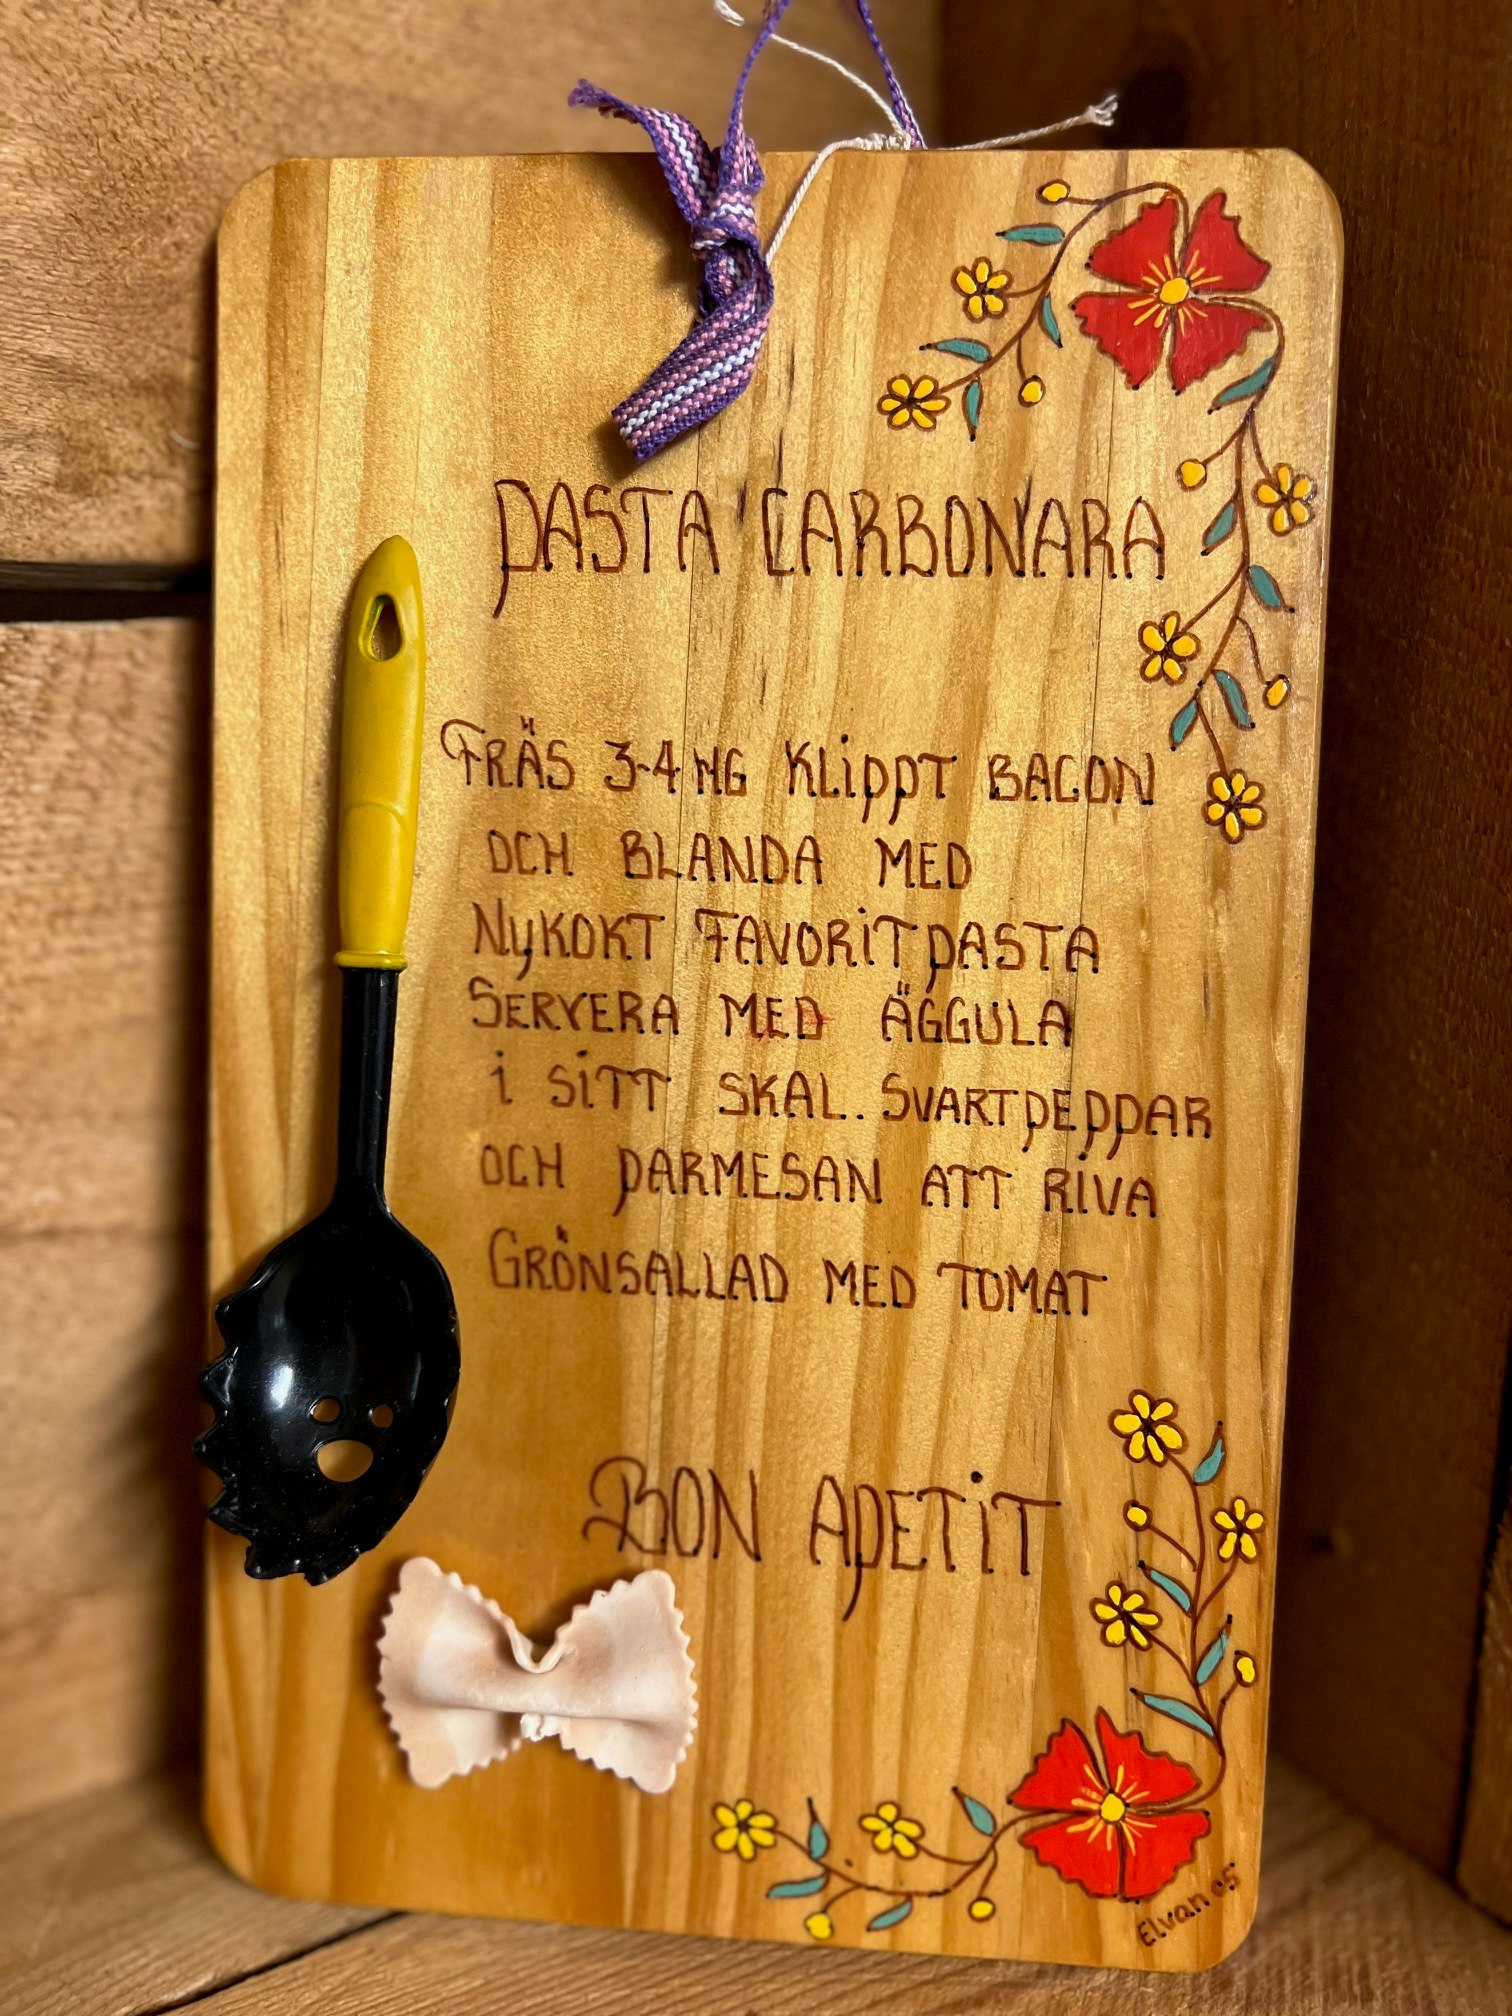 PASTA CARBONARA
FRÄS 3-4 HG KLIPPT BACON
OCH BLANDA MED
NYKOKT FAVORITPASTA
SERVERA MED ÄGGULA
I SITT SKAL. SVARTPEPPAR
OCH PARMESAN ATT RIVA
GRÖNSALLAD MED TOMAT
BON APETIT
Elvan 05